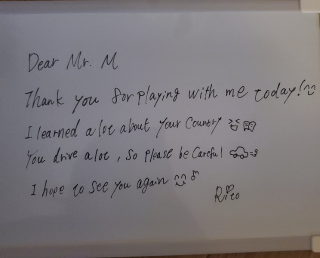 Dear Mr. M
Thank you for playing with me today!
I learned a lot about your country
You drive a lot, so please be careful
I hope to see you again
Rico